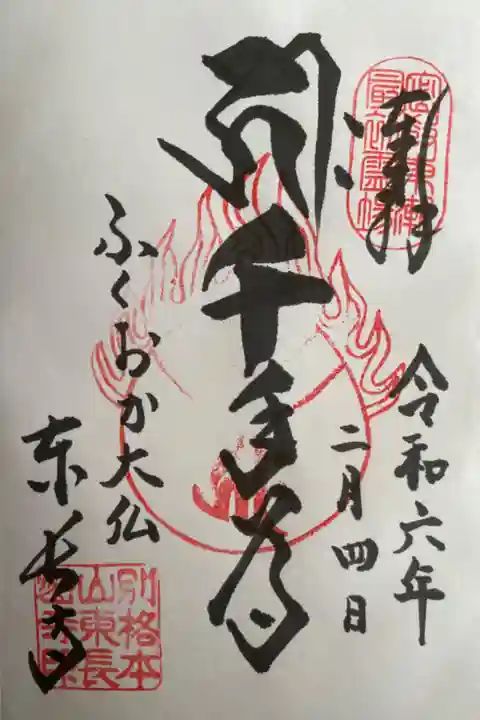 奉拝
令和六年
二月四日
千手尊
ふくおか大仏
東長寺
密教東漸
最初霊場
別格本
山東長